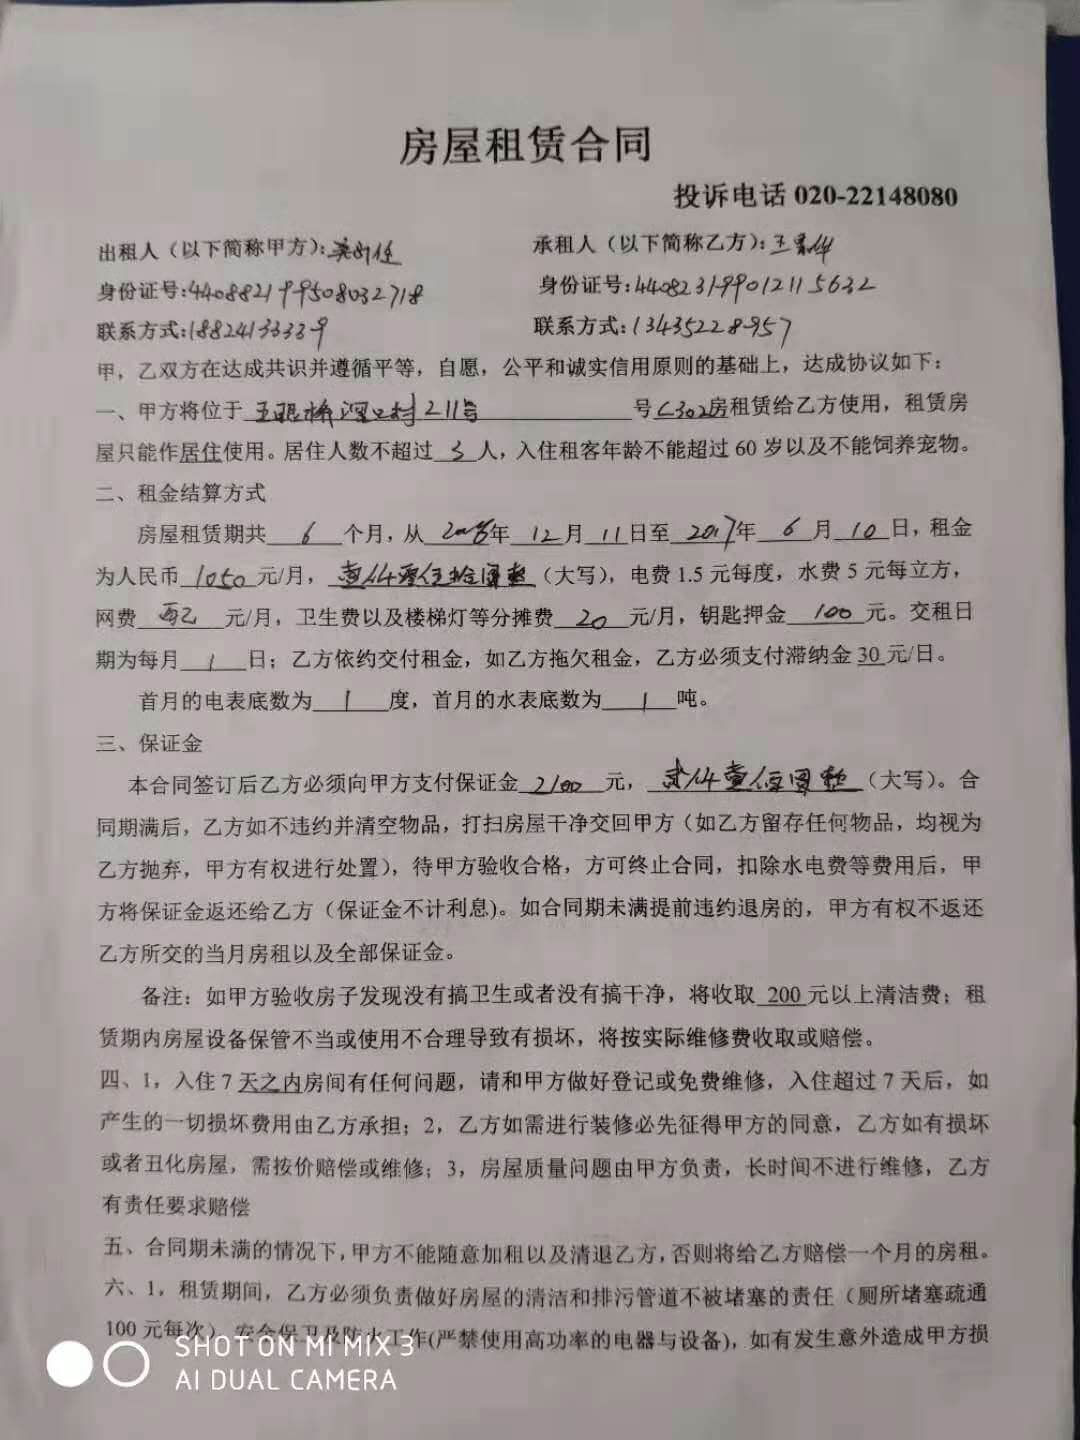 房屋租赁合同
投诉电话 020-22148080
出租人（以下简称甲方）： 承租人（以下简称乙方）：王
身份证号:440882199508032718 身份证号:440823199012115632
联系方式:18824133339 联系方式:13435228957
甲，乙双方在达成共识并遵循平等，自愿，公平和诚实信用原则的基础上，达成协议如下：
一、甲方将位于 村211号 号C302房租赁给乙方使用，租赁房
屋只能作居住使用。居住人数不超过 3 人，入住租客年龄不能超过 60 岁以及不能饲养宠物。
二、租金结算方式
房屋租赁期共 6 个月，从 年 12 月 11 日至 年 6 月 10 日，租金
为人民币 1050 元/月，壹仟零伍拾圆整（大写），电费 1.5 元每度，水费 5 元每立方，
网费 元/月，卫生费以及楼梯灯等分摊费 20 元/月，钥匙押金 100 元。交租日
期为每月 1 日；乙方依约交付租金，如乙方拖欠租金，乙方必须支付滞纳金 30 元/日。
首月的电表底数为 1 度，首月的水表底数为 1 吨。
三、保证金
本合同签订后乙方必须向甲方支付保证金 2100 元，贰仟壹佰圆整（大写）。合
同期满后，乙方如不违约并清空物品，打扫房屋干净交回甲方（如乙方留存任何物品，均视为
乙方抛弃，甲方有权进行处置），待甲方验收合格，方可终止合同，扣除水电费等费用后，甲
方将保证金返还给乙方（保证金不计利息)。如合同期未满提前违约退房的，甲方有权不返还
乙方所交的当月房租以及全部保证金。
备注：如甲方验收房子发现没有搞卫生或者没有搞干净，将收取 200 元以上清洁费；租
赁期内房屋设备保管不当或使用不合理导致有损坏，将按实际维修费收取或赔偿。
四、1，入住 7 天之内房间有任何问题，请和甲方做好登记或免费维修，入住超过 7 天后，如
产生的一切损坏费用由乙方承担；2，乙方如需进行装修必先征得甲方的同意，乙方如有损坏
或者丑化房屋，需按价赔偿或维修；3，房屋质量问题由甲方负责，长时间不进行维修，乙方
有责任要求赔偿
五、合同期未满的情况下,甲方不能随意加租以及清退乙方,否则将给乙方赔偿一个月的房租。
六、1，租赁期间，乙方必须负责做好房屋的清洁和排污管道不被堵塞的责任（厕所堵塞疏通
100 元每次），安全保卫及防火工作(严禁使用高功率的电器与设备)，如有发生意外造成甲方损
SHOT ON MI MIX 3
AI DUAL CAMERA